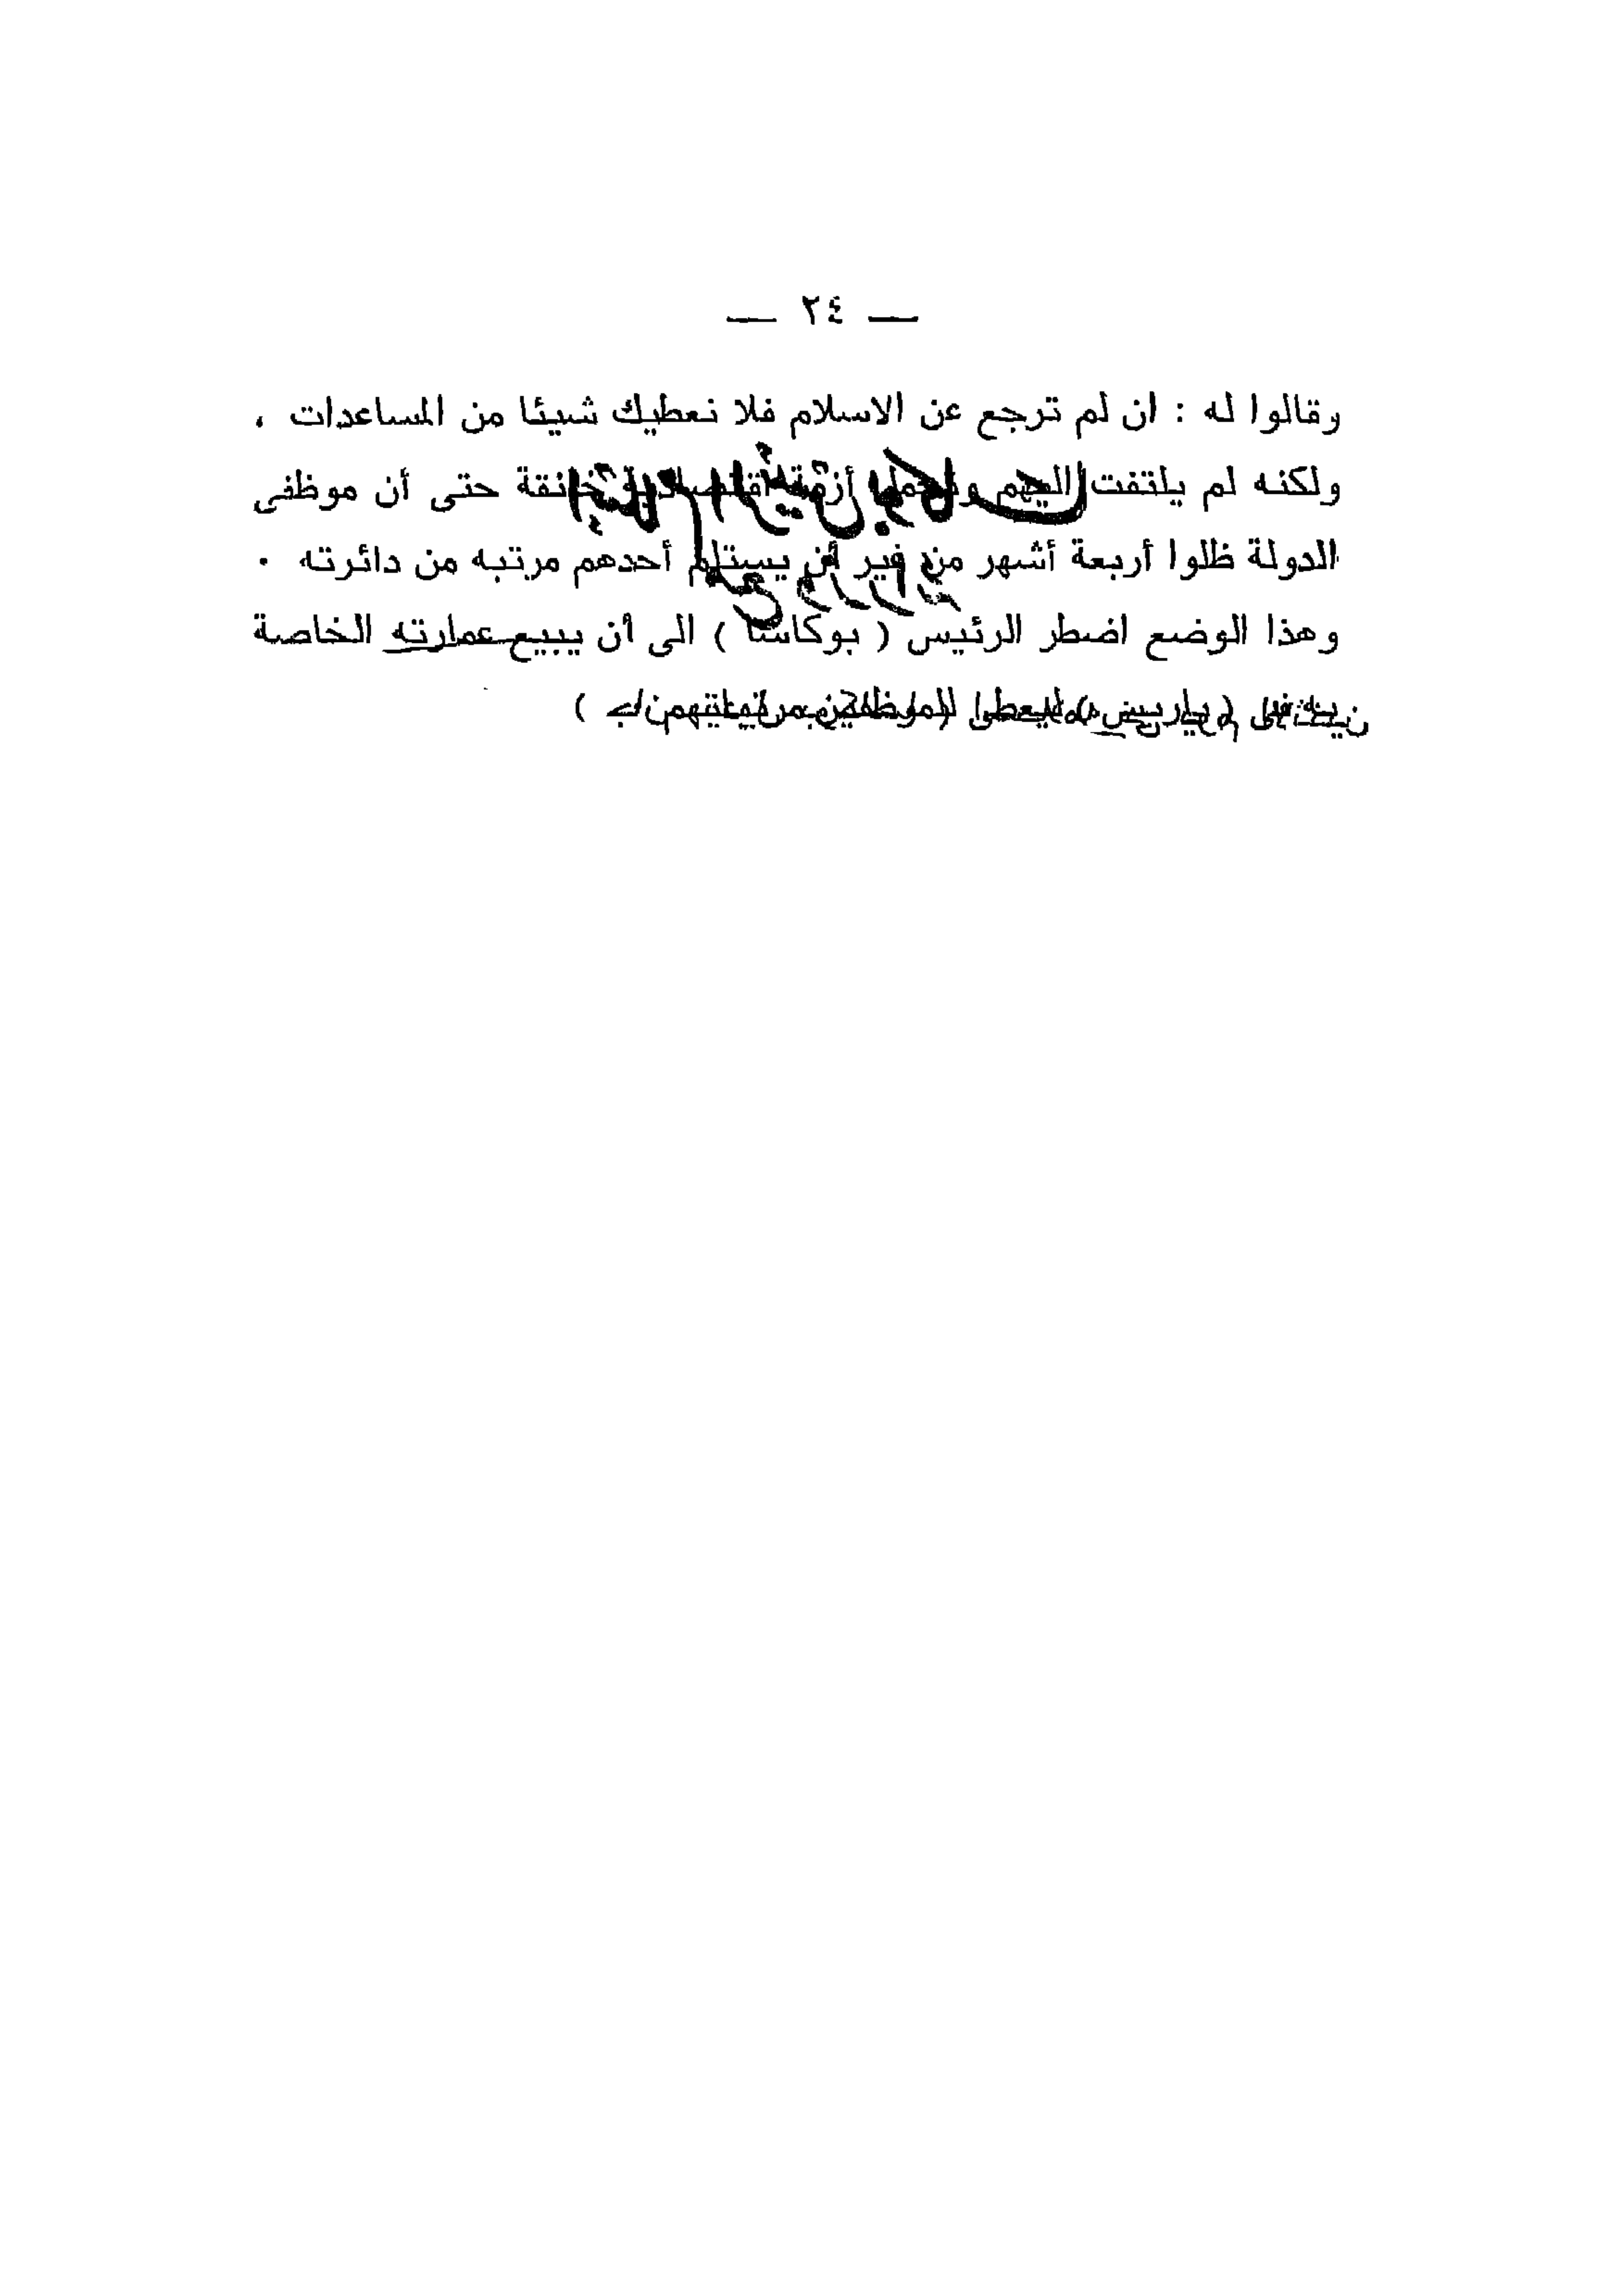 — ٢٤ —
وقالوا له : ان لم ترجع عن الاسلام فلا نعطيك شيئا من المساعدات ،
ولكنه لم يلتفت اليهم وتحمل أزمة اقتصادية خانقة حتى أن موظفى
الدولة ظلوا أربعة أشهر من غير أن يستلم أحدهم مرتبه من دائرته ٠
وهذا الوضع اضطر الرئيس ( بوكاسا ) الى أن يبيع عمارته الخاصة
فى ( باريس ) ليعطى الموظفين مرتباتهم